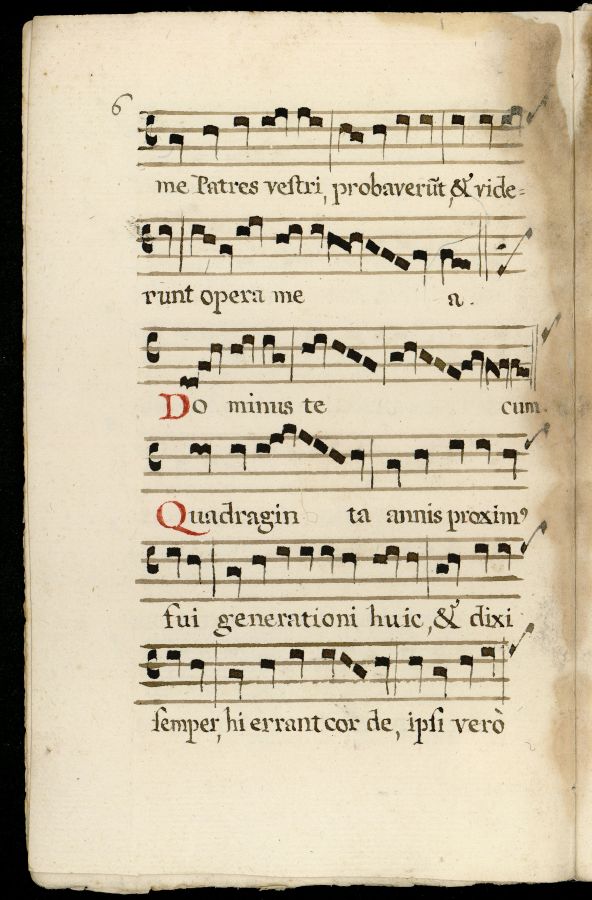 6
me Patres vestri, probaverūt, & vide=
runt opera me a.
Do minus te cum.
Quadragin ta annis proximꝰ
fui generationi huic, & dixi
semper, hi errant cor de, ipsi verò